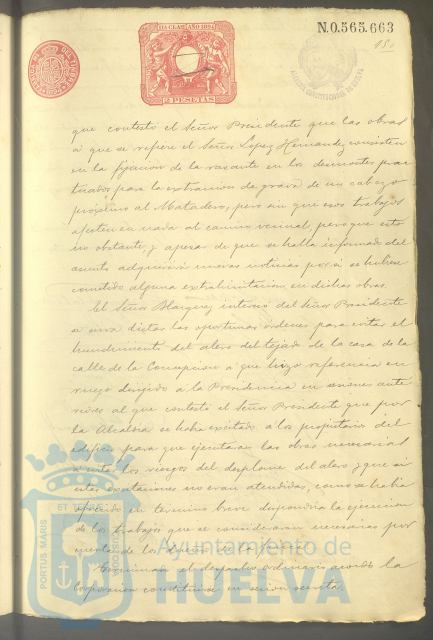 11A CLASE AÑO 1894
N.0.565.663
2 PESETAS
que contestó el Señor Presidente que las obras
á que se refiere el Señor Lopez Hernandez consisten
en la fijación de la rasante en los desmontes prac
ticados para la extracción de grava de un cabezo
próximo al Matadero, pero sin que esos trabajos
afecten en nada al camino vecinal, pero que esto
no obstante, y apesar de que se halla informado del
asunto adquirirá nuevas noticias por si se hubiese
cometido alguna extralimitación en dichas obras.
El Señor Marquez interesó del Señor Presidente
se sirva dictar las oportunas órdenes para evitar el
hundimiento del alero del tejado de la casa de la
calle de la Concepcion á que hizo referencia en
ruego dirijido á la Presidencia en sesiones ante
riores al que contestó el Señor Presidente que por
la Alcaldia se había excitado á los propietarios del
edificio para que ejecutaran las obras necesarias
á evitar los riesgos del desplome del alero y que si
estas excitaciones no eran atendidas, como se había
ofrecido en termino breve dispondria la ejecucion
de los trabajos que se consideraran necesarios por
cuenta de los dueños de la finca.
Terminado el despacho ordinario acordó la
Corporación constituirse en sesion secreta.
PORTUS MARIS
ET TERRAE
CUSTODIA
Ayuntamiento de
HUELVA